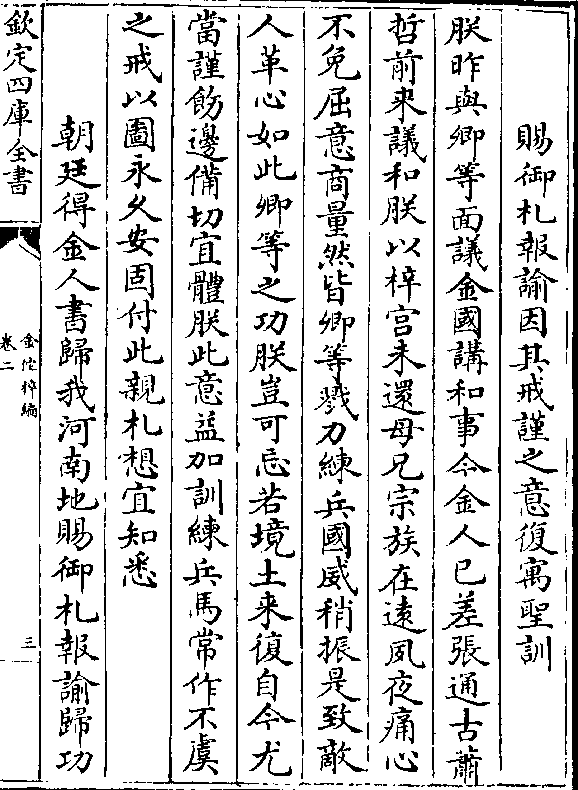 賜御札報諭因其戒謹之意復寓聖訓
朕昨與卿等面議金國講和事今金人已差張通古蕭
哲前来議和朕以梓宫未還母兄宗族在遠夙夜痛心
不免屈意商量然皆卿等戮力練兵國威稍振是致敵
人革心如此卿等之功朕豈可忘若境土来復自今尤
當謹飭邊備切宜體朕此意益加訓練兵馬常作不虞
之戒以圖永久安固付此親札想宜知悉
朝廷得金人書歸我河南地賜御札報諭歸功
欽定四庫全書
金佗稡編
卷二
三